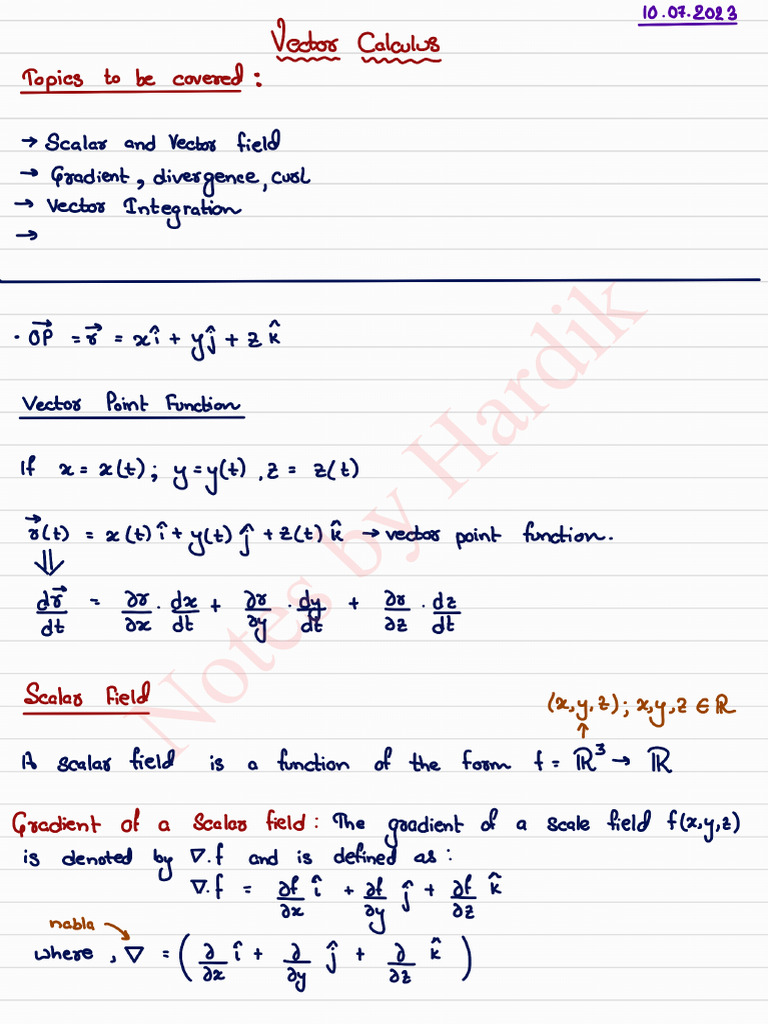 10.07.2023
Vector Calculus
Topics to be covered :
→ Scalar and Vector field
→ Gradient, divergence, curl
→ Vector Integration
→
· OP⃗ = r⃗ = xî + yĵ + zk̂
Vector Point Function
If x = x(t); y = y(t), z = z(t)
r⃗(t) = x(t)î + y(t)ĵ + z(t)k̂ → vector point function.
⇓
dr⃗/dt = ∂r/∂x · dx/dt + ∂r/∂y · dy/dt + ∂r/∂z · dz/dt
Scalar Field
(x,y,z); x,y,z ∈ ℝ
↑
A scalar field is a function of the form f = ℝ³ → ℝ
Gradient of a Scalar field: The gradient of a scale field f(x,y,z)
is denoted by ∇.f and is defined as:
∇.f = ∂f/∂x î + ∂f/∂y ĵ + ∂f/∂z k̂
nabla
where, ∇ = (∂/∂x î + ∂/∂y ĵ + ∂/∂z k̂)
Notes by Hardik